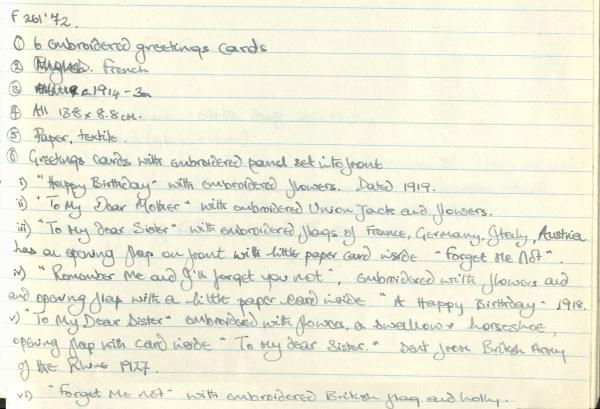 F261'72.
① 6 embroidered greetings cards
② French
③ c 1914-30
④ All 13.8 x 8.8cm.
⑤ Paper, textile.
⑥ Greetings cards with embroidered panel set into front
i) "Happy Birthday" with embroidered flowers. Dated 1919.
ii) "To My Dear Mother" with embroidered Union Jack and flowers.
iii) "To My dear Sister" with embroidered flags of France, Germany, Italy, Austria
has an opening flap on front with little paper card inside "Forget Me Not".
iv) "Remember Me and I'll forget you not", embroidered with flowers and
and opening flap with a little paper card inside "A Happy Birthday" 1918.
v) "To My Dear Sister" embroidered with flowers, a swallow & horseshoe,
opening flap with card inside "To my dear Sister." Sent from British Army
of the Rhine 1927.
vi) "Forget Me not" with embroidered British flag and holly.